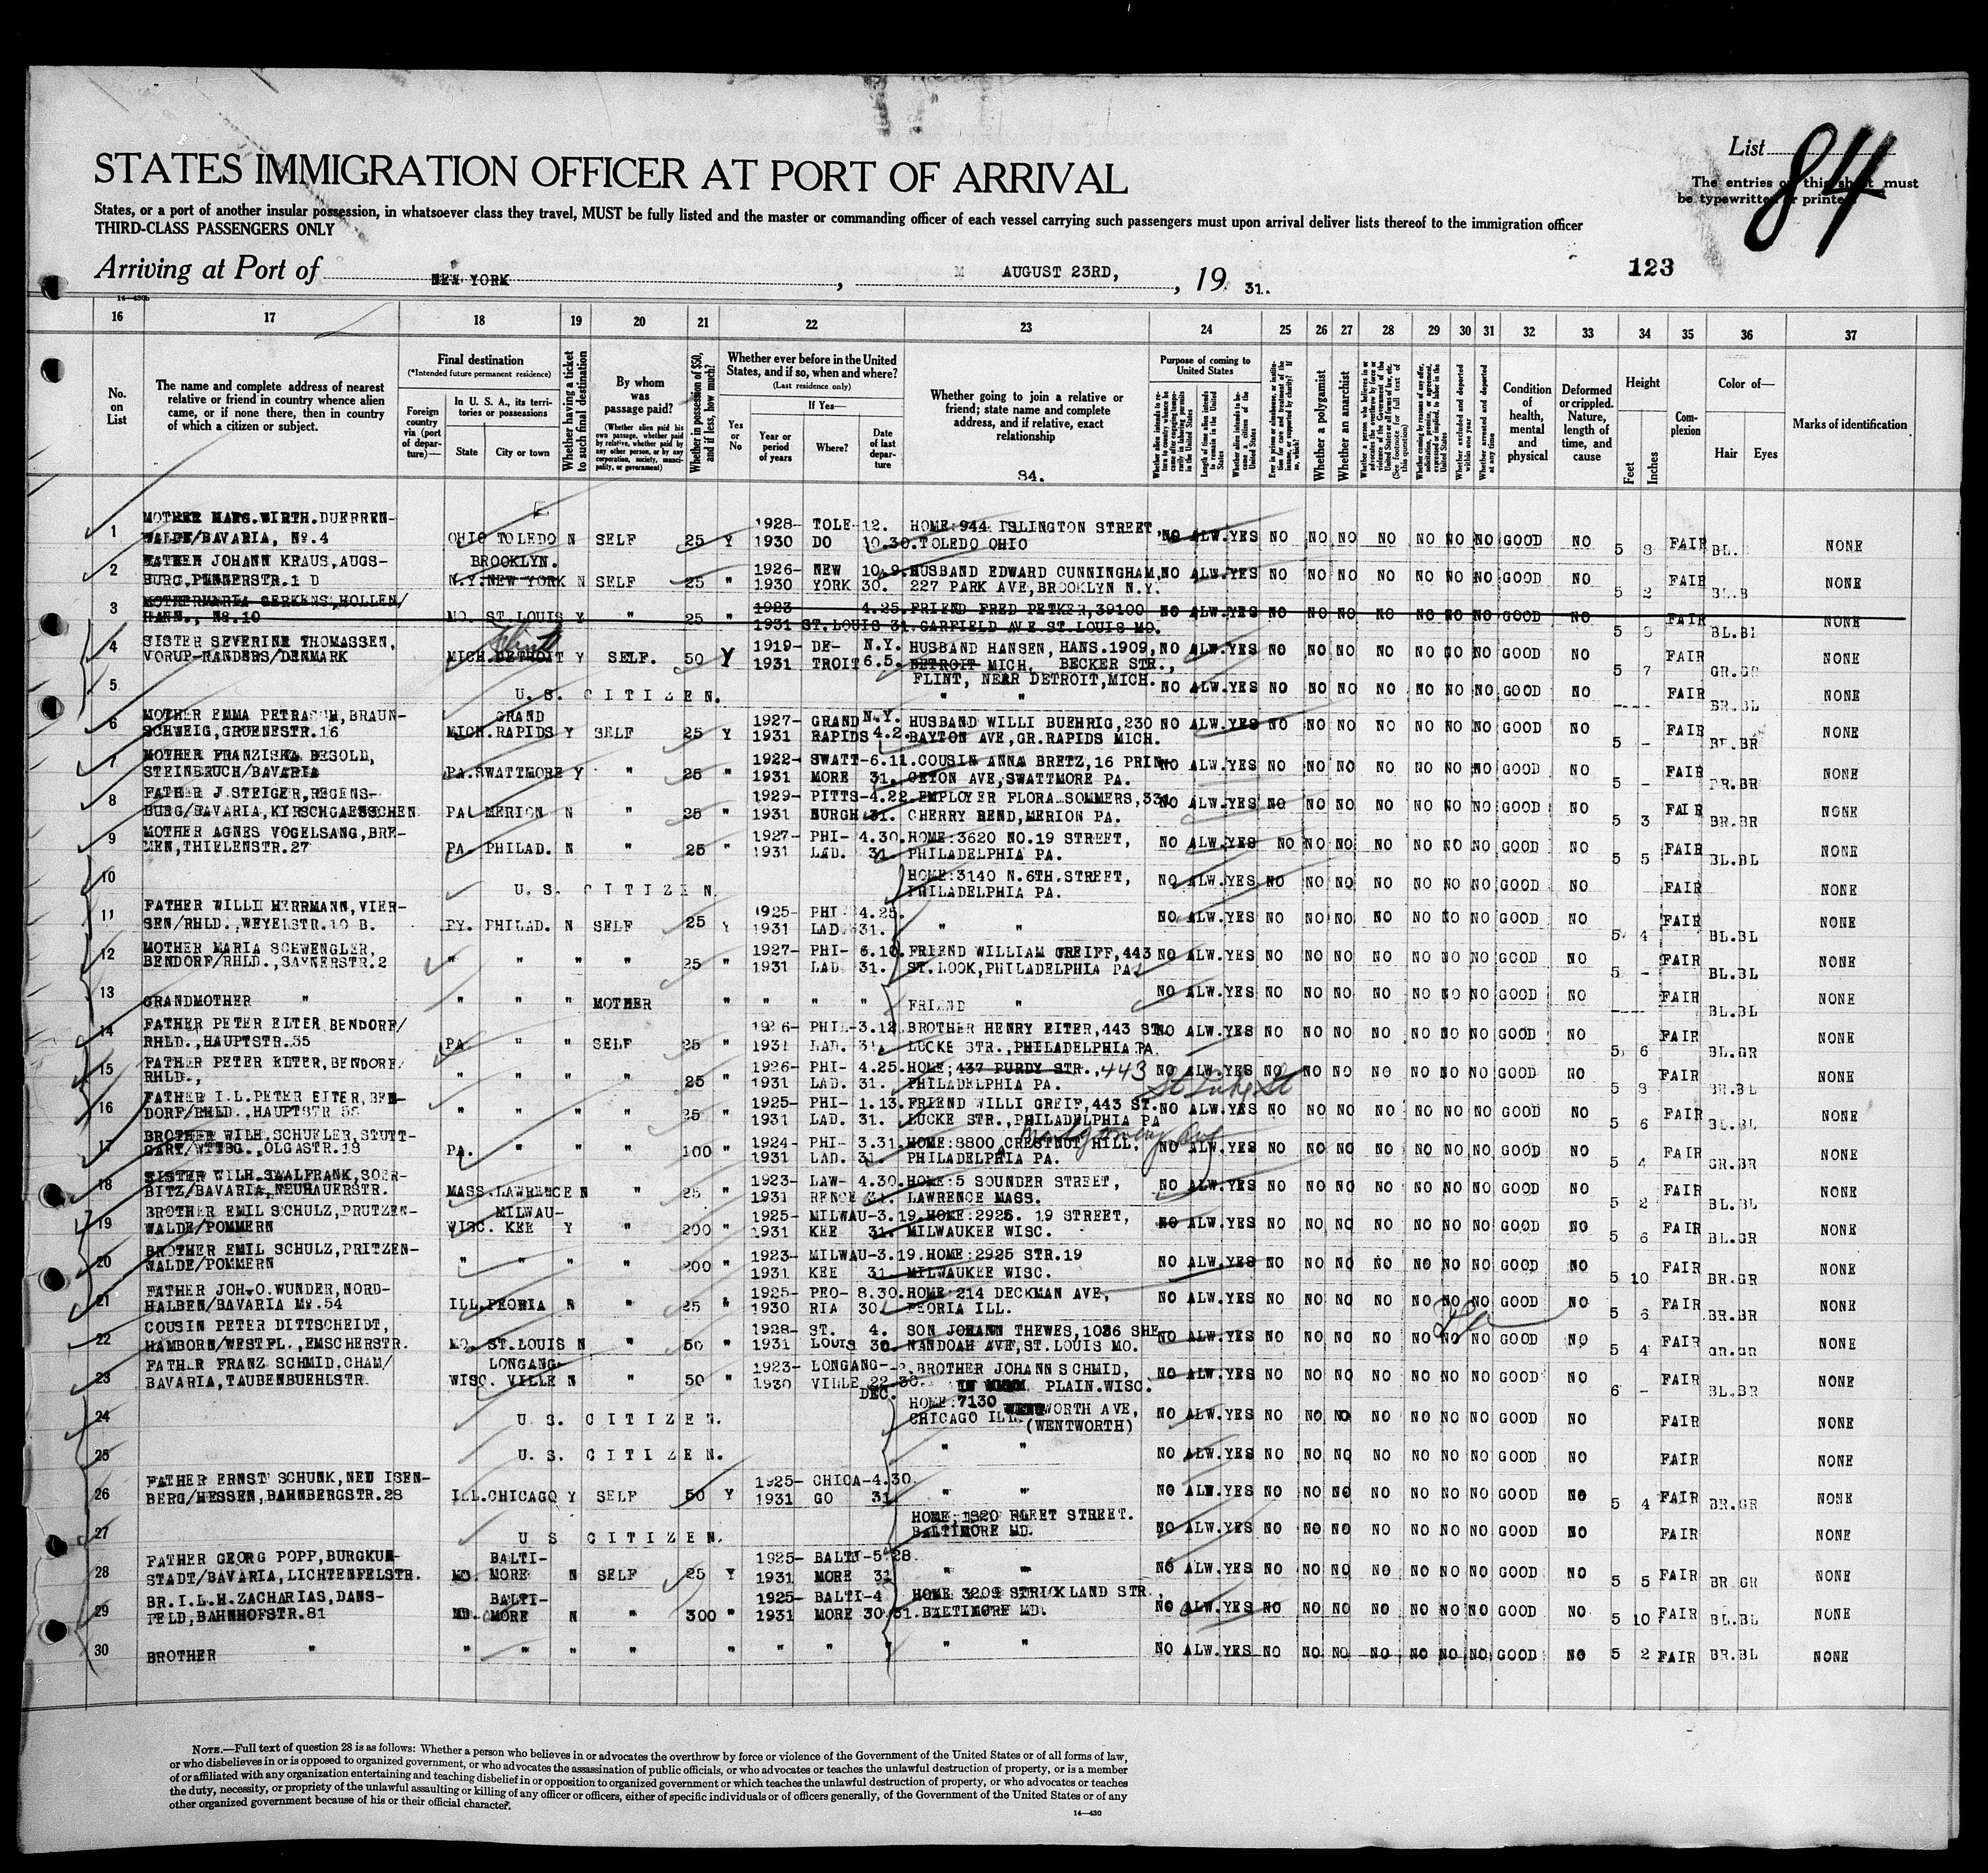 List 84
STATES IMMIGRATION OFFICER AT PORT OF ARRIVAL
The entries on this sheet must
be typewritten or printed.
States, or a port of another insular possession, in whatsoever class they travel, MUST be fully listed and the master or commanding officer of each vessel carrying such passengers must upon arrival deliver lists thereof to the immigration officer
THIRD-CLASS PASSENGERS ONLY
Arriving at Port of NEW YORK, AUGUST 23RD, 19 31.
123
16 17 18 19 20 21 22 23 24 25 26 27 28 29 30 31 32 33 34 35 36 37
No. on List
The name and complete address of nearest relative or friend in country whence alien came, or if none there, then in country of which a citizen or subject.
Final destination
(*Intended future permanent residence)
Foreign country via (port of departure)—
In U. S. A., its territories or possessions
State
City or town
Whether having a ticket to such final destination
By whom was passage paid?
(Whether alien paid his own passage, whether paid by relative, whether paid by any other person, or by any corporation, society, municipality, or government)
Whether in possession of $50, and if less, how much?
Whether ever before in the United States, and if so, when and where?
(Last residence only)
Yes or No
If Yes—
Year or period of years
Where?
Date of last departure
Whether going to join a relative or friend; state name and complete address, and if relative, exact relationship
84.
Purpose of coming to United States
Whether a polygamist
Whether an anarchist
Condition of health, mental and physical
Deformed or crippled. Nature, length of time, and cause
Height
Feet
Inches
Complexion
Color of—
Hair
Eyes
Marks of identification
1 MOTHER MARG.WIRTH.DUERREN- 1928- TOLE- 12. HOME:944 ISLINGTON STREET,
WALDE/BAVARIA, No.4 OHIO TOLEDO N SELF 25 Y 1930 DO 10.30. TOLEDO OHIO NO ALW.YES NO NO NO NO NO NO NO GOOD NO 5 8 FAIR BL. NONE
2 FATHER JOHANN KRAUS,AUGS- BROOKLYN. 1926- NEW 10.9. HUSBAND EDWARD CUNNINGHAM,
N.Y. NEW YORK N SELF 25 " 1930 YORK 30. 227 PARK AVE,BROOKLYN N.Y. NO ALW.YES NO NO NO NO NO NO NO GOOD NO 5 2 FAIR NONE
3 MOTHER MARIA GERKENS,HOLLEN/ 1923 4.25. FRIEND FRED PETKER,39100
HANN., No.10 MO. ST.LOUIS Y " 25 " 1931 ST.LOUIS 31. GARFIELD AVE.ST.LOUIS MO. NO ALW.YES NO NO NO NO NO NO NO GOOD NO 5 FAIR NONE
4 SISTER SEVERINE THOMASSEN, Flint 1919- DE- N.Y. HUSBAND HANSEN,HANS.1909,
VORUP-RANDERS/DENMARK MICH.DETROIT Y SELF. 50 Y 1931 TROIT 6.5. DETROIT MICH, BECKER STR., NO ALW.YES NO NO NO NO NO NO NO GOOD NO 5 7 FAIR NONE
FLINT, NEAR DETROIT,MICH.
5 U.S. CITIZEN. " " NO ALW.YES NO NO NO NO NO NO NO GOOD NO ---- FAIR BR.BL NONE
6 MOTHER EMMA PETRASCH,BRAUN- GRAND 1927- GRAND N.Y. HUSBAND WILLI BUEHRIG,230
SCHWEIG,GRUENESTR.16 MICH.RAPIDS Y SELF 25 Y 1931 RAPIDS 4.2. BAYTON AVE,GR.RAPIDS MICH. NO ALW.YES NO NO NO NO NO NO NO GOOD NO 5 - FAIR BR.BR NONE
7 MOTHER FRANZISKA BESOLD, 1922- SWATT- 6.11. COUSIN ANNA BRETZ,16 PRIN-
STEINBRUCH/BAVARIA PA.SWATTMORE Y " 25 " 1931 MORE 31. CETON AVE,SWATTMORE PA. NO ALW.YES NO NO NO NO NO NO NO GOOD NO 5 - FAIR BR.BR NONE
8 FATHER J.STEIGER,REGENS- 1929- PITTS- 4.22. EMPLOYER FLORA SOMMERS,334
BURG/BAVARIA,KIRSCHGAESSCHEN PA MERION N " 25 " 1931 BURGH 31. CHERRY BEND,MERION PA. NO ALW.YES NO NO NO NO NO NO NO GOOD NO 5 3 FAIR BR.BR NONE
9 MOTHER AGNES VOGELSANG,BRE- 1927- PHI- 4.30. HOME:3620 NO.19 STREET,
MEN,THIELENSTR.27 PA. PHILAD. N " 25 " 1931 LAD. 31. PHILADELPHIA PA. NO ALW.YES NO NO NO NO NO NO NO GOOD NO 5 5 FAIR BL.BL NONE
10 HOME:3140 N.6TH.STREET,
U.S. CITIZEN. PHILADELPHIA PA. NO ALW.YES NO NO NO NO NO NO NO GOOD NO FAIR NONE
11 FATHER WILLI HERRMANN,VIER- 1925- PHI- 4.25.
SEN/RHLD.,WEYELSTR.10 B. PY. PHILAD. N SELF 25 Y 1931 LAD. 31. " " NO ALW.YES NO NO NO NO NO NO NO GOOD NO 5 4 FAIR BL.BL NONE
12 MOTHER MARIA SCHWENGLER, 1927- PHI- 6.10. FRIEND WILLIAM GREIFF,443
BENDORF/RHLD.,SAYNERSTR.2 " " " " 25 " 1931 LAD 31. ST.LOOK,PHILADELPHIA PA. NO ALW.YES NO NO NO NO NO NO NO GOOD NO 5 - FAIR BL.BL NONE
13 GRANDMOTHER " " " " MOTHER " " " " FRIEND " NO ALW.YES NO NO NO NO NO NO NO GOOD NO ---- FAIR BL.BL NONE
14 FATHER PETER EITER BENDORF/ 1926- PHIL- 3.12. BROTHER HENRY EITER,443 ST.
RHLD.,HAUPTSTR.55 PA. " " SELF 25 " 1931 LAD. 31. LUCKE STR.,PHILADELPHIA PA. NO ALW.YES NO NO NO NO NO NO NO GOOD NO 5 6 FAIR BL.GR NONE
15 FATHER PETER EITER,BENDORF/ 1926- PHI- 4.25. HOME;437 PURDY STR., 443 St Luke St
RHLD., " " " " 25 " 1931 LAD. 31. PHILADELPHIA PA. NO ALW.YES NO NO NO NO NO NO NO GOOD NO 5 8 FAIR BR.BL NONE
16 FATHER I.L.PETER EITER,BEN- 1925- PHI- 1.13. FRIEND WILLI GREIF,443 ST.
DORF/RHLD.,HAUPTSTR 55 " " " " 25 " 1931 LAD. 31. LUCKE STR.,PHILADELPHIA PA NO ALW.YES NO NO NO NO NO NO NO GOOD NO 5 6 FAIR BL.BL NONE
17 BROTHER WILH.SCHUELER,STUTT- 1924- PHI- 3.31. HOME:8800 CHESTNUT HILL, Montgomery Ave
GART/WTTBG.,OLGASTR.18 PA. " " " 100 " 1931 LAD. 31. PHILADELPHIA PA. NO ALW.YES NO NO NO NO NO NO NO GOOD NO 5 4 FAIR GR.BR NONE
18 SISTER WILH.SWALFRANK,SOER- 1923- LAW- 4.30. HOME:5 SOUNDER STREET,
BITZ/BAVARIA,NEUHAUERSTR. MASS.LAWRENCE N " 25 " 1931 RENCE 31. LAWRENCE MASS. NO ALW.YES NO NO NO NO NO NO NO GOOD NO 5 2 FAIR BL.BL NONE
19 BROTHER EMIL SCHULZ,PRUTZEN- MILWAU- 1925- MILWAU- 3.19. HOME:2925. 19 STREET,
WALDE/POMMERN WISC. KEE Y " 200 " 1931 KEE 31. MILWAUKEE WISC. NO ALW.YES NO NO NO NO NO NO NO GOOD NO 5 6 FAIR BL.GR NONE
20 BROTHER EMIL SCHULZ,PRITZEN- 1923- MILWAU- 3.19. HOME:2925 STR.19
WALDE/POMMERN " " " " 200 " 1931 KEE 31. MILWAUKEE WISC. NO ALW.YES NO NO NO NO NO NO NO GOOD NO 5 10 FAIR BR.GR NONE
21 FATHER JOH.O.WUNDER,NORD- 1925- PEO- 8.30. HOME:214 DECKMAN AVE,
HALBEN/BAVARIA No.54 ILL.PEORIA N " 25 " 1930 RIA 30. PEORIA ILL. NO ALW.YES NO NO NO NO NO NO NO GOOD NO 5 6 FAIR BR.BR NONE
22 COUSIN PETER DITTSCHEIDT, 1928- ST. 4. SON JOHANN THEWES,1086 SHE
HAMBORN/WESTFL.,EMSCHERSTR. MO. ST.LOUIS N " 50 " 1931 LOUIS 30. NANDOAH AVE,ST.LOUIS MO. NO ALW.YES NO NO NO NO NO NO NO GOOD NO 5 4 FAIR GR.GR NONE
23 FATHER FRANZ SCHMID,CHAM/ LONGANG- 1923- LONGANG- BROTHER JOHANN SCHMID,
BAVARIA,TAUBENBUEHLSTR. WISC. VILLE N " 50 " 1930 VILLE 22.30. PLAIN.WISC. NO ALW.YES NO NO NO NO NO NO NO GOOD NO 6 - FAIR BL.BR NONE
DEC.
24 HOME:7130 WENTWORTH AVE,
U.S. CITIZEN. CHICAGO ILL. (WENTWORTH) NO ALW.YES NO NO NO NO NO NO NO GOOD NO FAIR NONE
25 U.S. CITIZEN. " " NO ALW.YES NO NO NO NO NO NO NO GOOD NO FAIR NONE
26 FATHER ERNST SCHUNK,NEU ISEN- 1925- CHICA- 4.30.
BERG/HESSEN,BAHNBERGSTR.28 ILL.CHICAGO Y SELF 50 Y 1931 GO 31 " " NO ALW.YES NO NO NO NO NO NO NO GOOD NO 5 4 FAIR BR.GR NONE
27 HOME:1820 FLEET STREET.
U S CITIZEN. BALTIMORE MD. NO ALW.YES NO NO NO NO NO NO NO GOOD NO FAIR NONE
28 FATHER GEORG POPP,BURGKUN- BALTI- 1925- BALTI- 5.28.
STADT/BAVARIA,LICHTENFELSTR. MD. MORE N SELF 25 Y 1931 MORE 31 " NO ALW.YES NO NO NO NO NO NO NO GOOD NO 5 5 FAIR BR GR NONE
29 BR.I.L.H.ZACHARIAS,DANS- BALTI- 1925- BALTI- 4 HOME 3209 STRICKLAND STR.,
FELD,BAHNHOFSTR.81 MD. MORE N " 300 " 1931 MORE 30.31. BALTIMORE MD. NO ALW.YES NO NO NO NO NO NO NO GOOD NO 5 10 FAIR BL.BL NONE
30 BROTHER " " " " " " " " " " " " NO ALW.YES NO NO NO NO NO NO NO GOOD NO 5 2 FAIR BR.BL NONE
NOTE.—Full text of question 28 is as follows: Whether a person who believes in or advocates the overthrow by force or violence of the Government of the United States or of all forms of law,
or who disbelieves in or is opposed to organized government, or who advocates the assassination of public officials, or who advocates or teaches the unlawful destruction of property, or is a member
of or affiliated with any organization entertaining and teaching disbelief in or opposition to organized government or which teaches the unlawful destruction of property, or who advocates or teaches
the duty, necessity, or propriety of the unlawful assaulting or killing of any officer or officers, either of specific individuals or of officers generally, of the Government of the United States or of any
other organized government because of his or their official character.
14—430